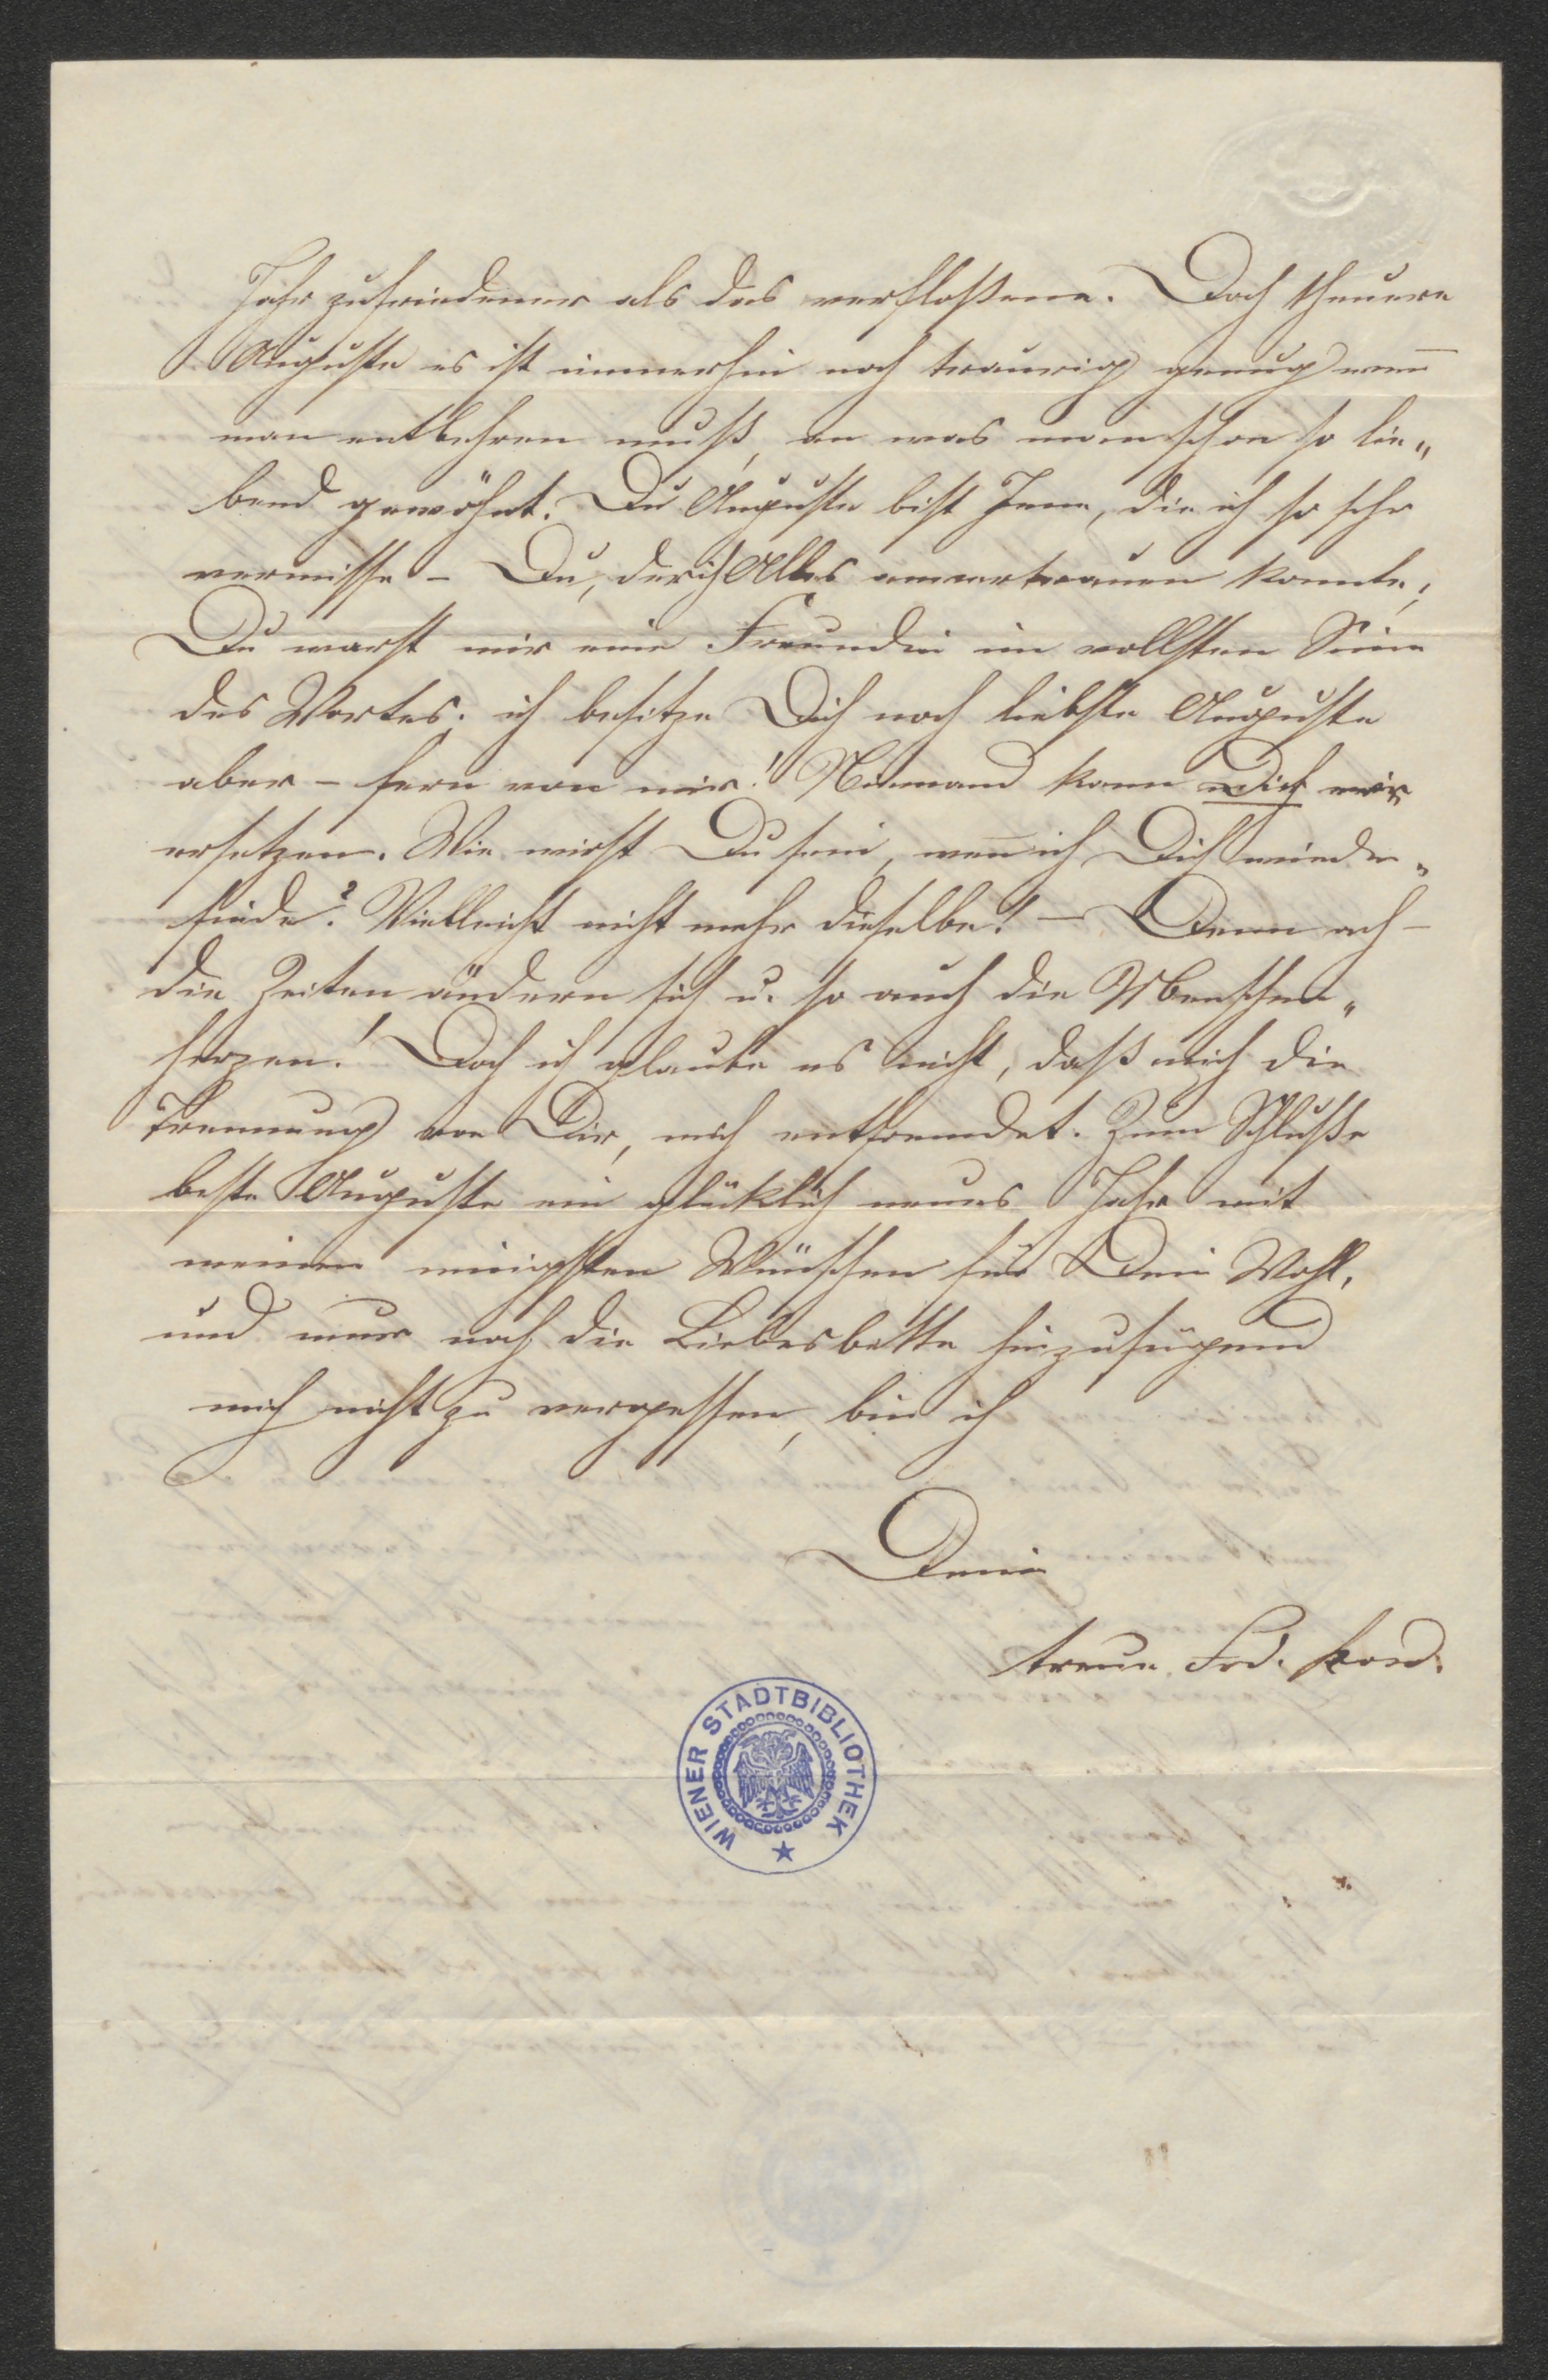 Jahr zufriedener als das verfloßene. Doch theuere
Auguste es ist immerhin noch traurig genug wen̄
man entbehren muß, an was man schon so lie„
bend gewöhnt. Du Auguste bist Jene, die ich so sehr
vermisse – Du, der ich Alles anvertrauen konnte;
Du warst mir eine Freundin im vollsten Sinne
des Wortes; ich besitze Dich noch liebste Auguste
aber – fern von mir! Niemand kann Dich mir
ersetzen. Wie wirst Du sein, wen̄ ich Dich wieder„
finde? Vielleicht nicht mehr dieselbe! – Denn ach –
die Zeiten ändern sich u. so auch die Menschen„
herzen! Doch ich glaube es nicht, daß mich die
Trennung von Dir, mich entfremdet. Zum Schluße
beste Auguste ein glücklich neues Jahr mit
meinen innigsten Wünschen für Dein Wohl,
und nur noch die Liebesbitte hinzufügend
mich nicht zu vergessen, bin ich
Deine
treue Frd.
WIENER STADTBIBLIOTHEK